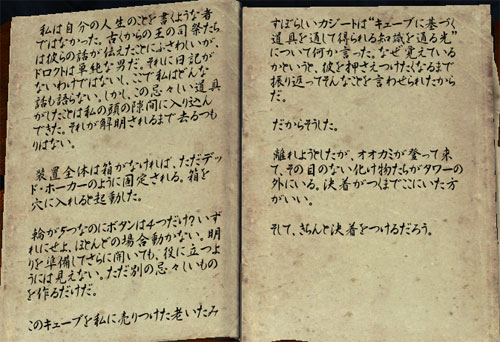 私は自分の人生のことを書くような者
ではなかった。古くからの王の司祭たち
は彼らの話が伝えたことにふさわしいが、
ドロクトは単純な男だ。それに日記が
ないわけではないし、ここで私はどんな
話も語らない。しかし、この忌々しい道具
がしたことは私の頭の隙間に入り込ん
できた。それが解明されるまで去るつも
りはない。
装置全体は箱がなければ、ただデッ
ド・ホーカーのように固定される。箱を
穴に入れると起動した。
輪が5つなのにボタンは4つだけ？いず
れにせよ、ほとんどの場合動かない。明
りを準備してさらに開いても、役に立つよ
うには見えない。ただ別の忌々しいもの
を作るだけだ。
このキューブを私に売りつけた老いたみ
すぼらしいカジートは“キューブに基づく
道具を通して得られる知識を通る光”
について何か言った。なぜ覚えている
かというと、彼を押さえつけたくなるまで
振り返ってそんなことを言わせられたから
だ。
だからそうした。
離れようとしたが、オオカミが登って来
て、その目のない化け物たちがタワーの
外にいる。決着がつくまでここにいた方
がいい。
そして、きちんと決着をつけるだろう。